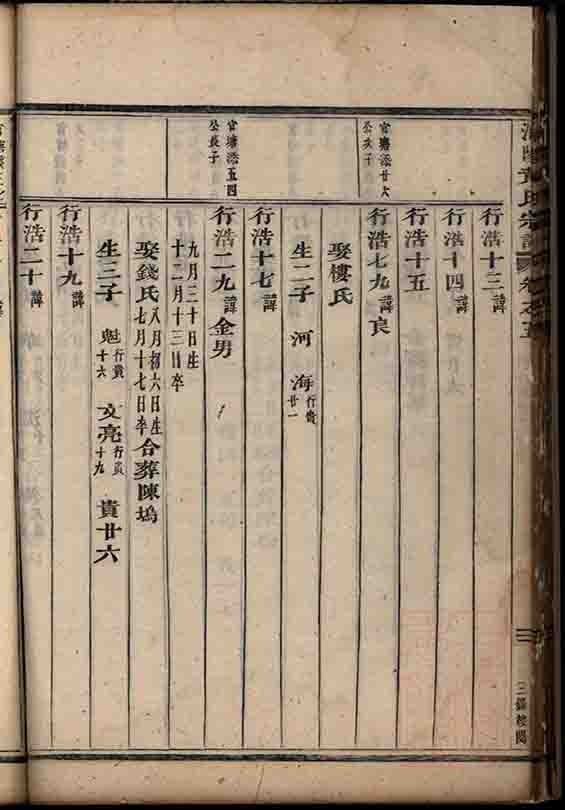 行浩十三諱
行浩十四諱
行浩十五
官塘添廿六
公長子
行浩七九諱良
娶樓氏
生二子 河 海行貴廿一
行浩十七諱
官塘添五四
公長子
行浩二九諱金男
九月三十日生
十二月十三日卒
娶錢氏八月初六日生
七月十七日卒合葬陳塢
生三子 魁行貴十六 文亮行貴十九 貴廿六
行浩十九諱
行浩二十諱